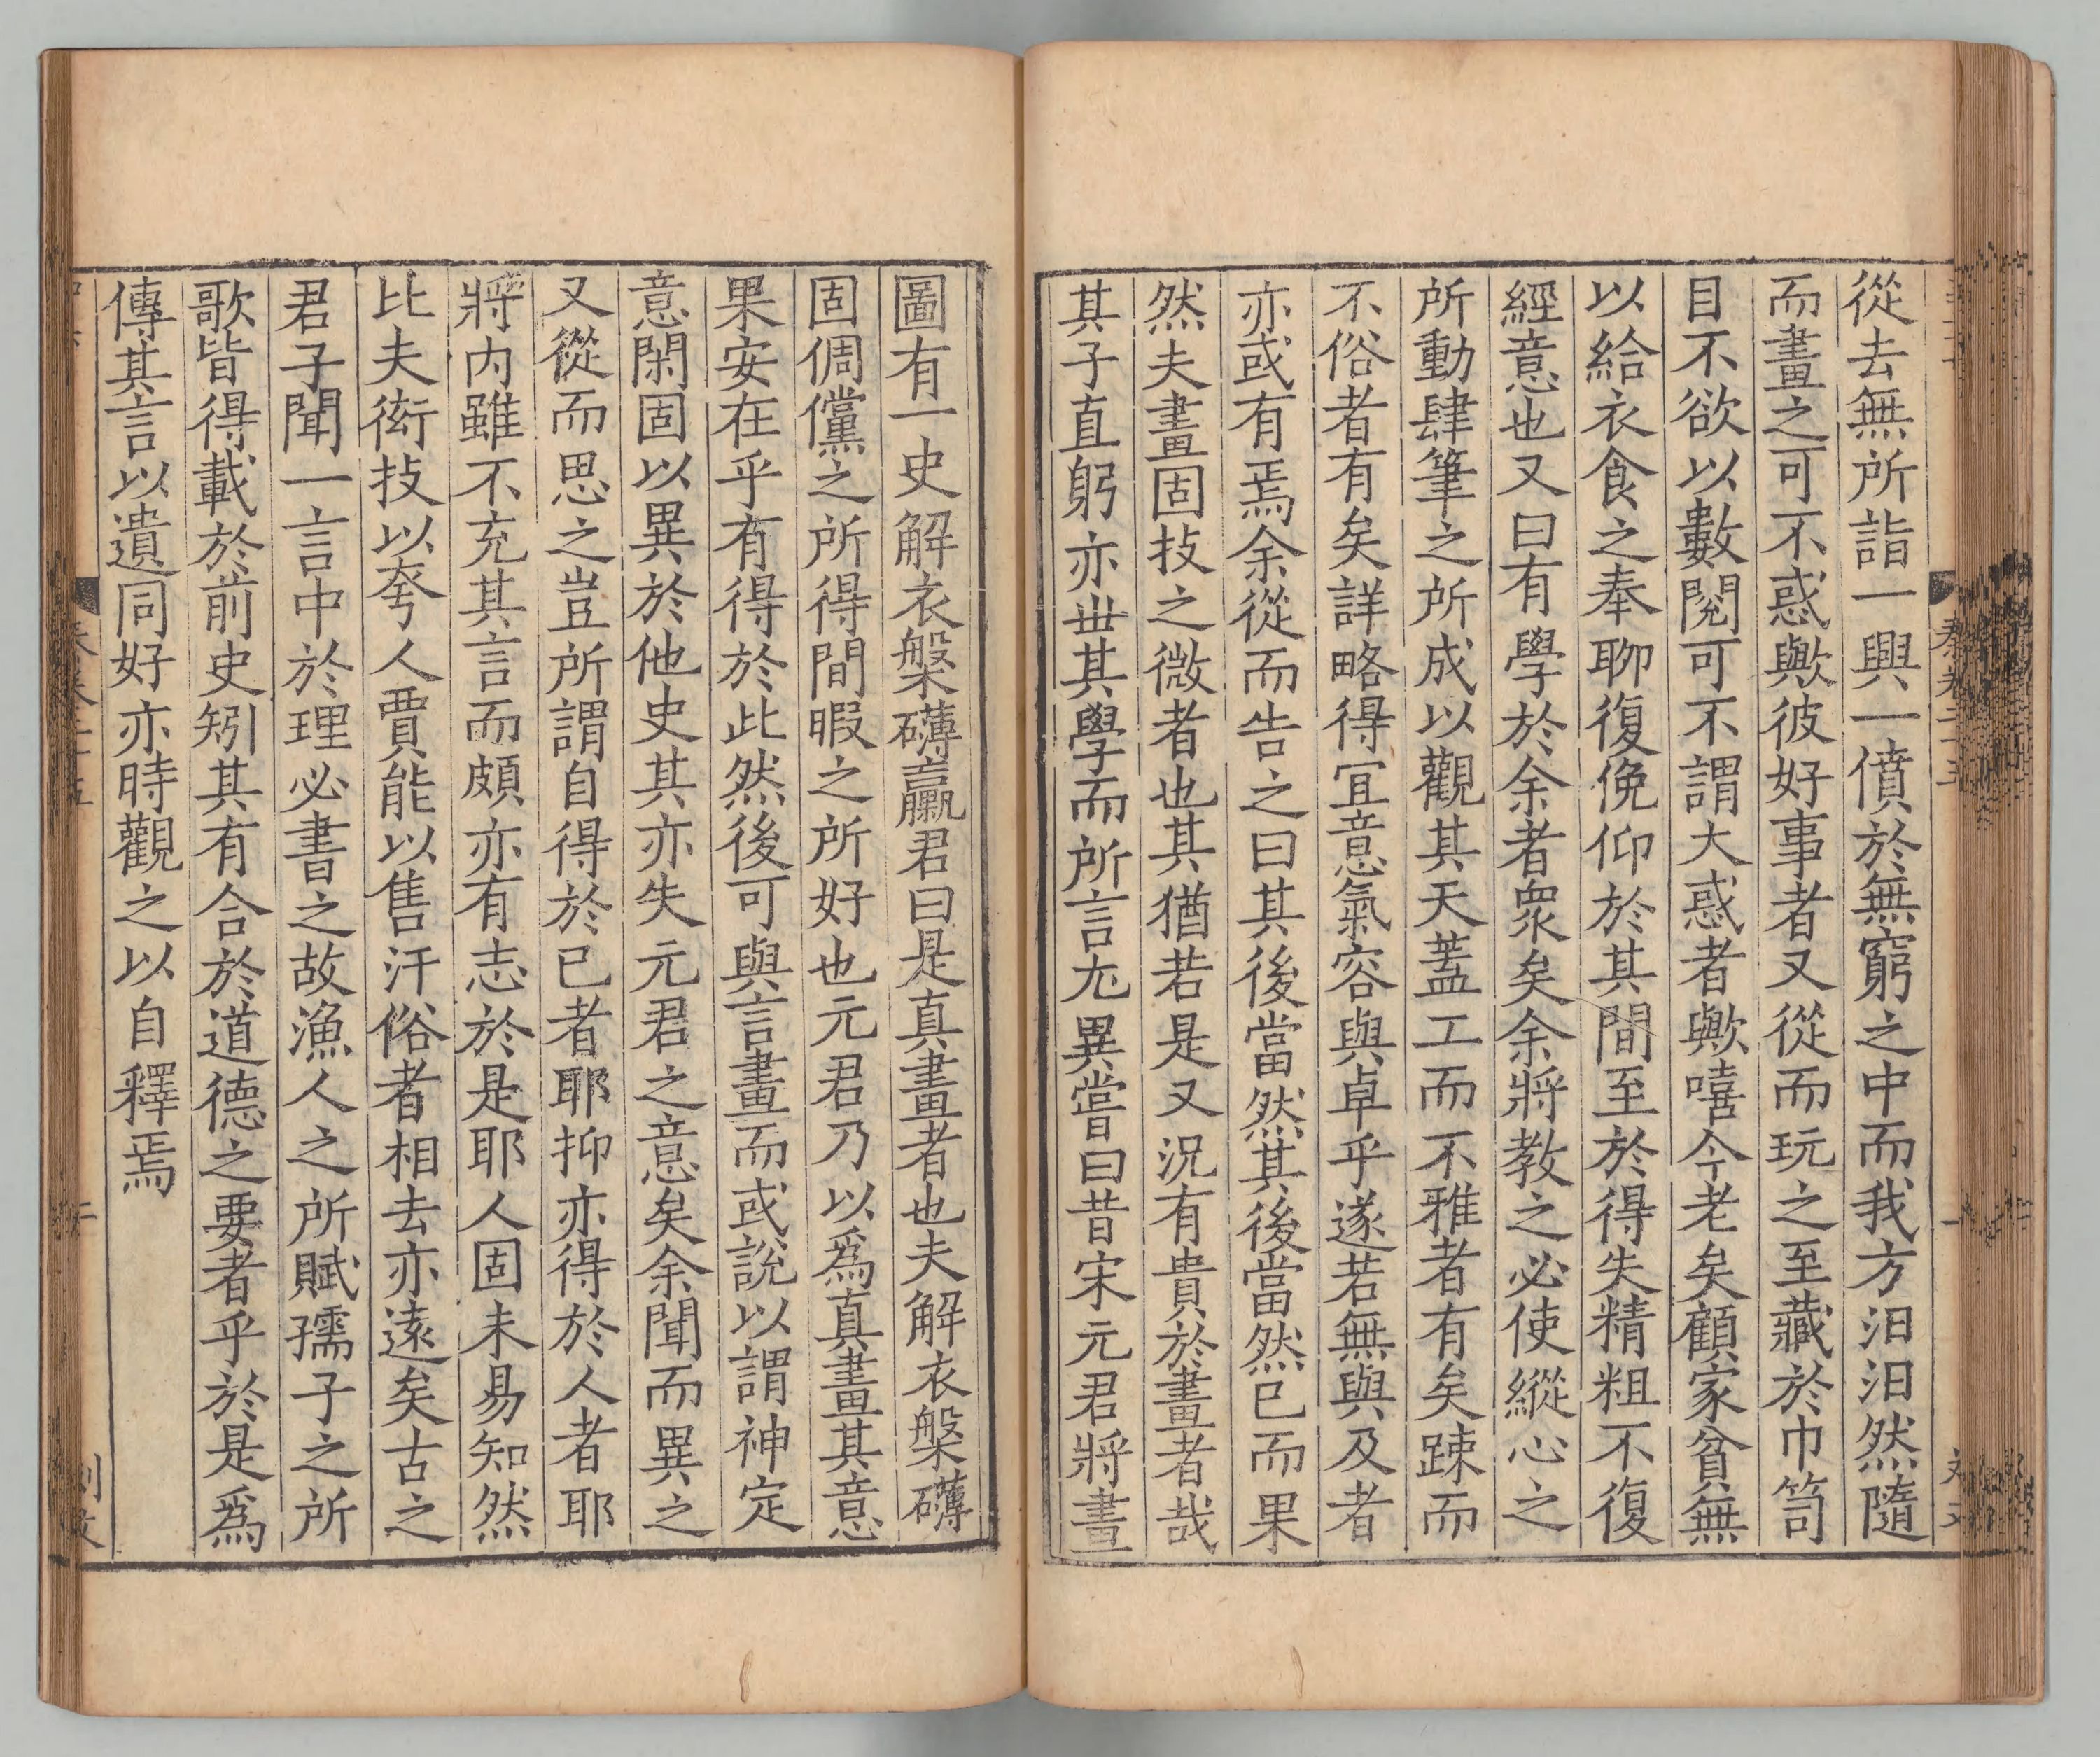 從去無所詣一興一僨於無窮之中而我方汩汩然隨
而畫之可不惑歟彼好事者又從而玩之至藏於巾笥
目不欲以數閱可不謂大惑者歟嘻今老矣顧家貧無
以給衣食之奉聊復俛仰於其間至於得失精粗不復
經意也又曰有學於余者衆矣余將教之必使縱心之
所動肆筆之所成以觀其天蓋工而不雅者有矣踈而
不俗者有矣詳略得冝意氣容與卓乎遂若無與及者
亦或有焉余從而告之曰其後當然其後當然已而果
然夫畫固技之微者也其猶若是又況有貴於畫者哉
其子直躬亦丗其學而所言尤異嘗曰昔宋元君將畫
圖有一史解衣槃礴臝君曰是真畫者也夫解衣槃礴
固倜儻之所得間暇之所好也元君乃以爲真畫其意
果安在乎有得於此然後可與言畫而或說以謂神定
意閑固以異於他史其亦失元君之意矣余聞而異之
又從而思之豈所謂自得於已者耶抑亦得於人者耶
將内雖不充其言而頗亦有志於是耶人固未易知然
比夫衒技以夸人賈能以售汙俗者相去亦遠矣古之
君子聞一言中於理必書之故漁人之所賦孺子之所
歌皆得載於前史矧其有合於道德之要者乎於是爲
傳其言以遺同好亦時觀之以自釋焉